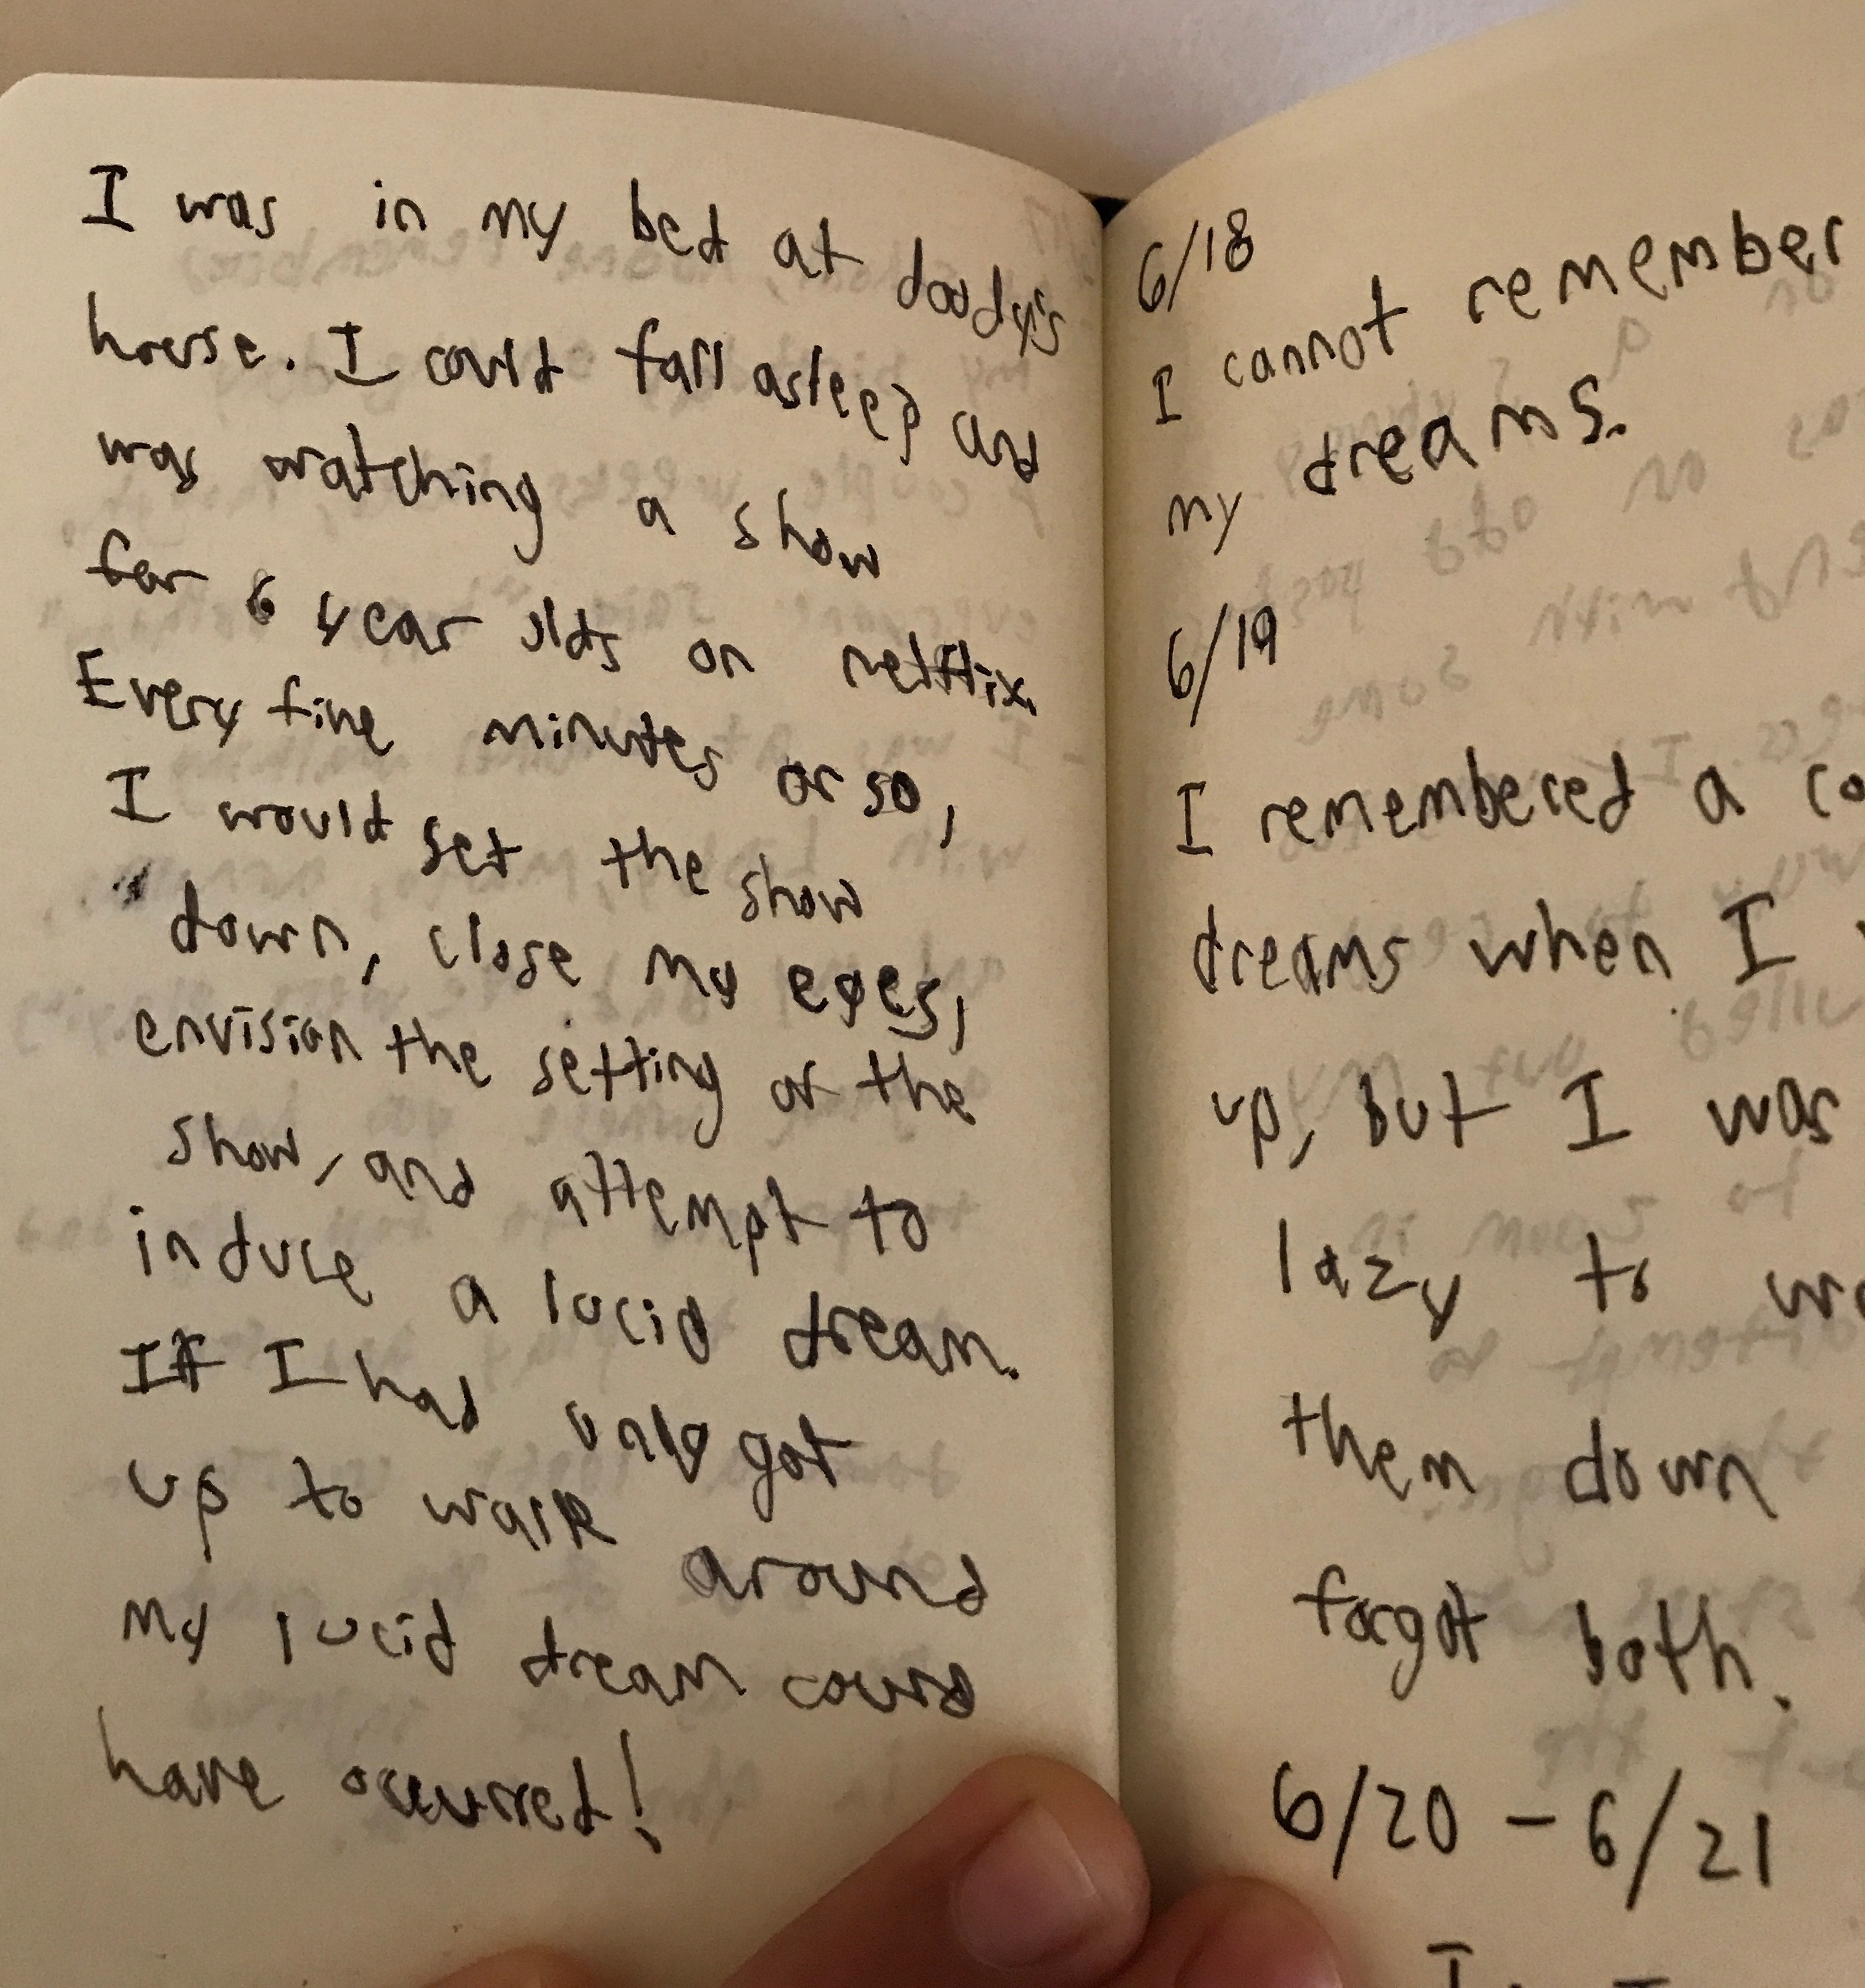 I was in my bed at doody's
house. I could fall asleep and
was watching a show
for 6 year olds on netflix.
Every five minutes or so,
I would set the show
down, close my eyes,
envision the setting of the
show, and attempt to
induce a lucid dream.
If I had only got
up to walk around
my lucid dream could
have occurred!
6/18
I cannot remember
my dreams.
6/19
I remembered a co
dreams when I
up, but I was
lazy to
them down
forgot both.
6/20 - 6/21